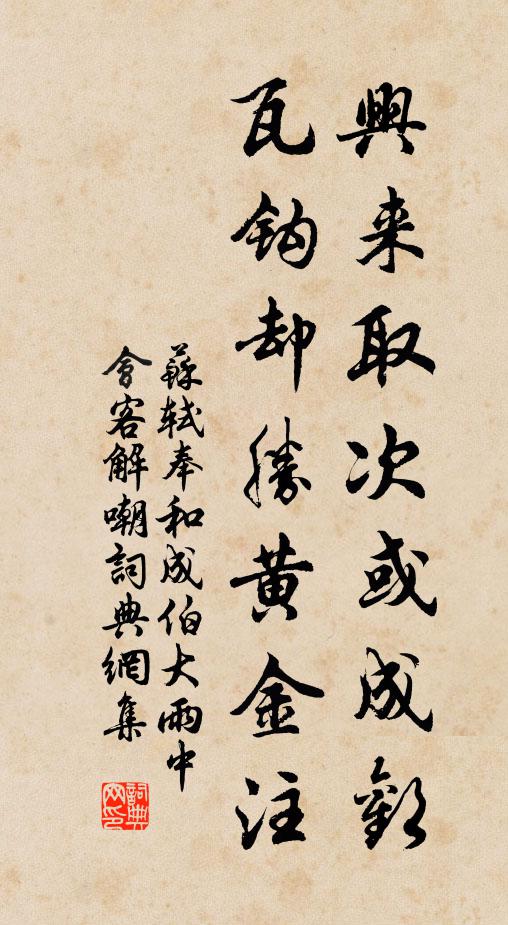 興来取次或成歡
瓦鈎却勝黄金注
蘇軾奉和成伯大雨中
會客解嘲詞典網集
詞典
网印